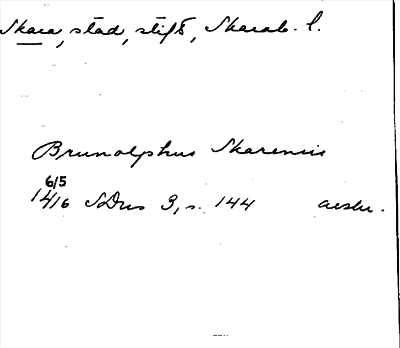 Skara, stad, stift, Skarab. l.
Brunolphus Skarensis
6/5
1416 SDns 3, s. 144 avskr.